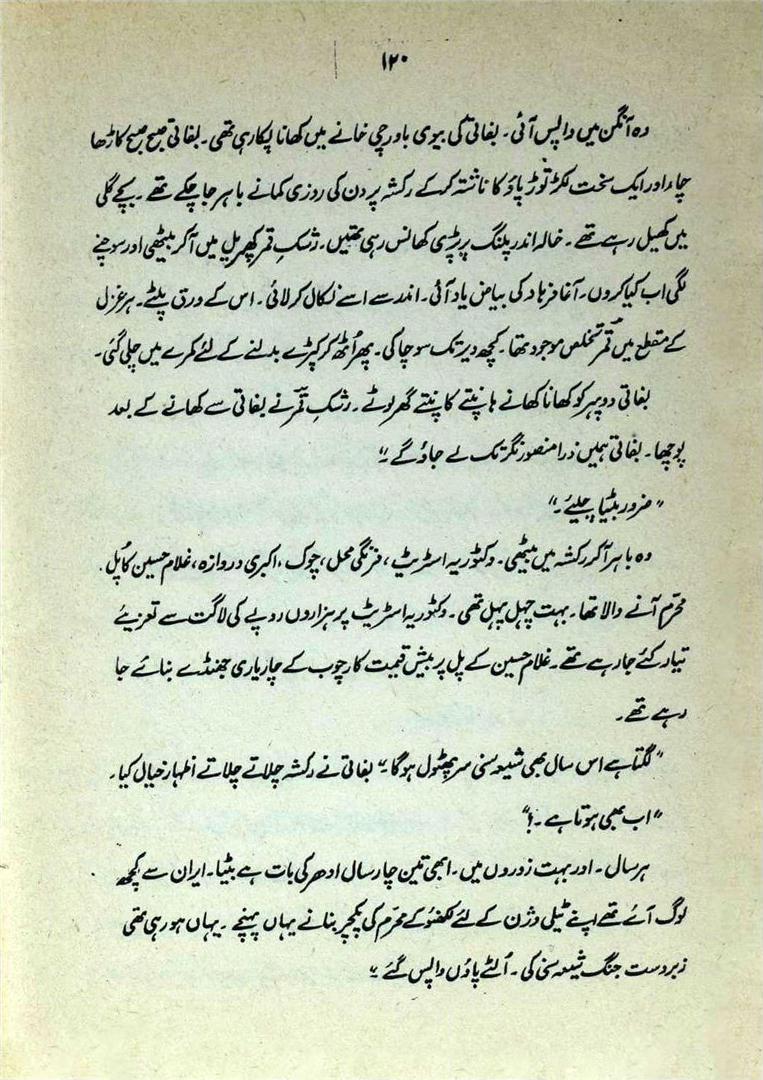 ۱۲۰
وہ آنگن میں واپس آئی۔ بفاتی کی بیوی باورچی خانے میں کھانا پکارہی تھی۔ بفاتی صبح صبح کاڑھا
چاء اور ایک سخت لکڑ توڑ پاؤ کا ناشتہ کرکے رکشہ پر دن کی روزی کمانے باہر جاچکے تھے۔ بچے گلی
میں کھیل رہے تھے۔ خالہ اندر پلنگ پر پڑی کھانس رہی تھیں۔ رشکِ قمر کھپریل میں آکر بیٹھی اور سوچنے
لگی اب کیا کروں۔ آغا فرہاد کی بیاض یاد آئی۔ اندر سے اسے نکال کر لائی۔ اس کے ورق پلٹے۔ ہر غزل
کے مقطع میں قمرؔ تخلص موجود تھا۔ کچھ دیر تک سوچا کی۔ پھر اُٹھ کر کپڑے بدلنے کے لئے کمرے میں چلی گئی۔
بفاتی دوپہر کو کھانا کھانے ہانپتے کانپتے گھر لوٹے۔ رشکِ قمرؔ نے بفاتی سے کھانے کے بعد
پوچھا۔ بفاتی ہمیں ذرا منصور نگر تک لے جاؤگے۔"
"ضرور بٹیا چلیئے۔"
وہ باہر آکر رکشہ میں بیٹھی۔ وکٹوریہ اسٹریٹ، فرنگی محل، چوک، اکبری دروازہ، غلام حسین کا پُل۔
محرّم آنے والا تھا۔ بہت چہل پہل تھی۔ وکٹوریہ اسٹریٹ پر ہزاروں روپے کی لاگت سے تعزیئے
تیار کئے جارہے تھے۔ غلام حسین کے پل پر بیش قیمت کارچوب کے چار یاری جھنڈے بنائے جا
رہے تھے۔
"لگتا ہے اس سال بھی شیعہ سنی سر پھٹول ہوگا۔" بفاتی نے رکشہ چلاتے چلاتے اظہارِ خیال کیا۔
"اب بھی ہوتا ہے۔؟"
ہر سال۔ اور بہت زوروں میں۔ ابھی تین چار سال ادھر کی بات ہے بٹیا۔ ایران سے کچھ
لوگ آئے تھے اپنے ٹیلی وژن کے لئے لکھنؤ کے محرّم کی پکچر بنانے یہاں پہنچے۔ یہاں ہو رہی تھی
زبردست جنگ شیعہ سنی کی۔ اُلٹے پاؤں واپس گئے۔"